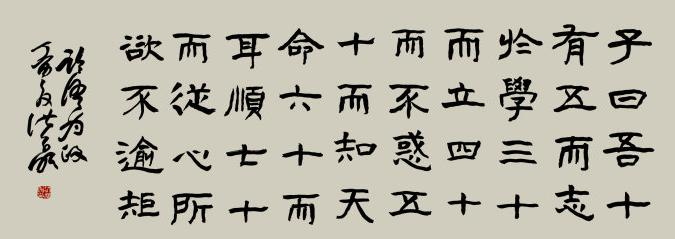 子曰吾十
有五而志
於學三十
而立四十
而不惑五
十而知天
命六十而
耳順七十
而從心所
欲不逾矩
論語為政